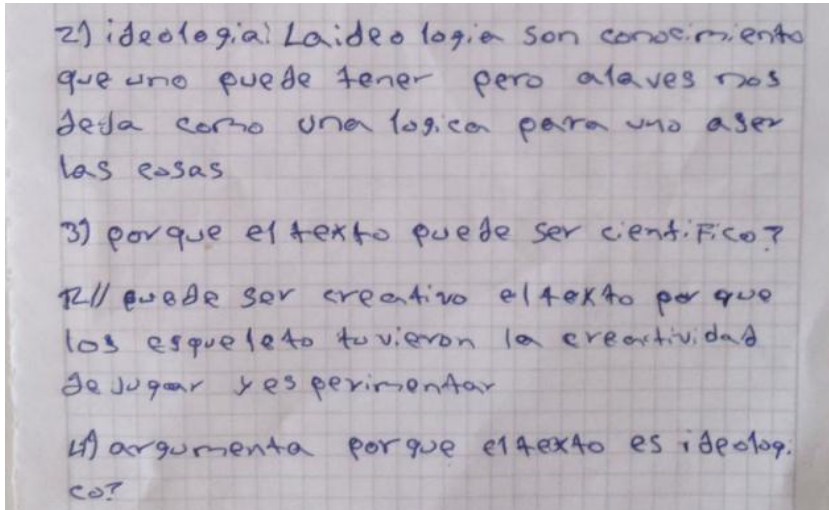 2) ideologia: La ideologia son conocimiento
que uno puede tener pero alaves nos
deja como una logica para uno aser
las cosas
3) porque el texto puede ser cientifico?
R// puede ser creativo el texto por que
los esqueleto tuvieron la creactividad
de jugar y esperimentar
4) argumenta porque el texto es ideologi
co?